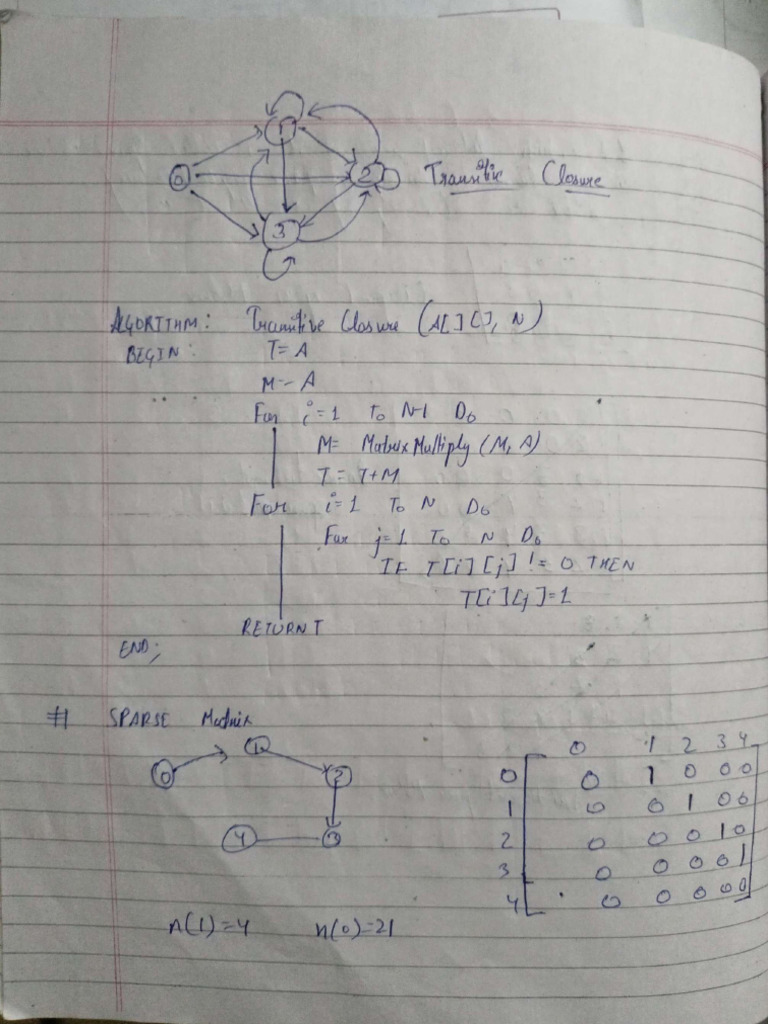 1
0
2
3
Transitive Closure
ALGORITHM: Transitive Closure (A[][], N)
BEGIN: T=A
M=A
For i=1 To N-1 Do
M= Matrix Multiply (M, A)
T=T+M
For i=1 To N Do
For j=1 To N Do
IF T[i][j] != 0 THEN
T[i][j]=1
RETURN T
END;
# SPARSE Matrix
0 1 2 3 4
0 0 1 0 0 0
1 0 0 1 0 0
2 0 0 0 1 0
3 0 0 0 0 1
4 0 0 0 0 0
1
0 2
4 3
n(1)=4 n(0)=21